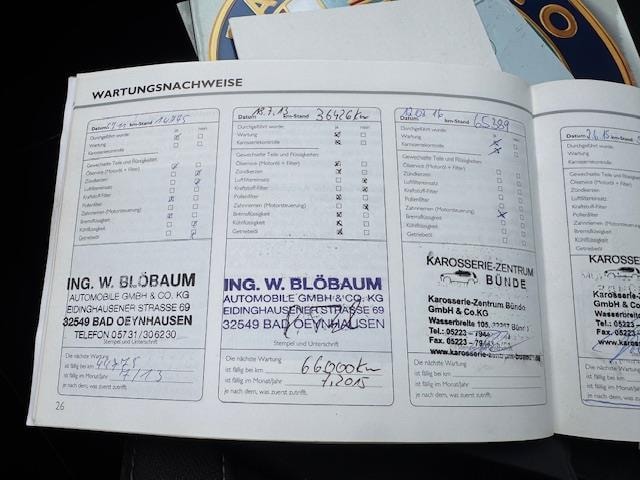 WARTUNGSNACHWEISE
Datum km-Stand 14775
ja nein
Durchgeführt wurde:
Wartung
Karosseriekontrolle
Gewechselte Teile und Flüssigkeiten:
Ölservice (Motoröl + Filter)
Zündkerzen
Luftfiltereinsatz
Kraftstoff-Filter
Pollenfilter
Zahnriemen (Motorsteuerung)
Bremsflüssigkeit
Kühlflüssigkeit
Getriebeöl
ING. W. BLÖBAUM
AUTOMOBILE GMBH & CO. KG
EIDINGHAUSENER STRASSE 69
32549 BAD OEYNHAUSEN
TELEFON 05731/306230
Die nächste Wartung
ist fällig bei km 44775
ist fällig im Monat/Jahr 7/13
je nach dem, was zuerst zutrifft.
26
Datum 18.7.13 km-Stand 36426 km
ja nein
Durchgeführt wurde:
Wartung
Karosseriekontrolle
Gewechselte Teile und Flüssigkeiten:
Ölservice (Motoröl + Filter)
Zündkerzen
Luftfiltereinsatz
Kraftstoff-Filter
Pollenfilter
Zahnriemen (Motorsteuerung)
Bremsflüssigkeit
Kühlflüssigkeit
Getriebeöl
ING. W. BLÖBAUM
AUTOMOBILE GMBH & CO. KG
EIDINGHAUSENER STRASSE 69
32549 BAD OEYNHAUSEN
Stempel und Unterschrift
Die nächste Wartung
ist fällig bei km 66000 km
ist fällig im Monat/Jahr 7.2015
je nach dem, was zuerst zutrifft.
Datum km-Stand 65389
ja nein
Durchgeführt wurde:
Wartung
Karosseriekontrolle
Gewechselte Teile und Flüssigkeiten:
Ölservice (Motoröl + Filter)
Zündkerzen
Luftfiltereinsatz
Kraftstoff-Filter
Pollenfilter
Zahnriemen (Motorsteuerung)
Bremsflüssigkeit
Kühlflüssigkeit
Getriebeöl
KAROSSERIE-ZENTRUM
BÜNDE
Karosserie-Zentrum Bünde
GmbH & Co.KG
Wasserbreite 105, Bünde
Tel.: 05223 -
Fax. 05223 -
www.karosserie-zentrum-
Die nächste Wartung
ist fällig bei km
ist fällig im Monat/Jahr
je nach dem, was zuerst zutrifft.
Datum 2.6.15
Durchgeführt wurde:
Wartung
Karosseriekontrolle
Gewechselte Teile und
Ölservice (Motoröl + Filter)
Zündkerzen
Luftfiltereinsatz
Kraftstoff-Filter
Pollenfilter
Zahnriemen (Motorsteuerung)
Bremsflüssigkeit
Kühlflüssigkeit
Getriebeöl
KAROSSE
Karosserie-Z
GmbH & Co
Wasserbreite
Tel.: 05223
Fax. 05223
www.karos
Die nächste Wartung
ist fällig bei km
ist fällig im Monat/Jahr
je nach dem, was zuerst